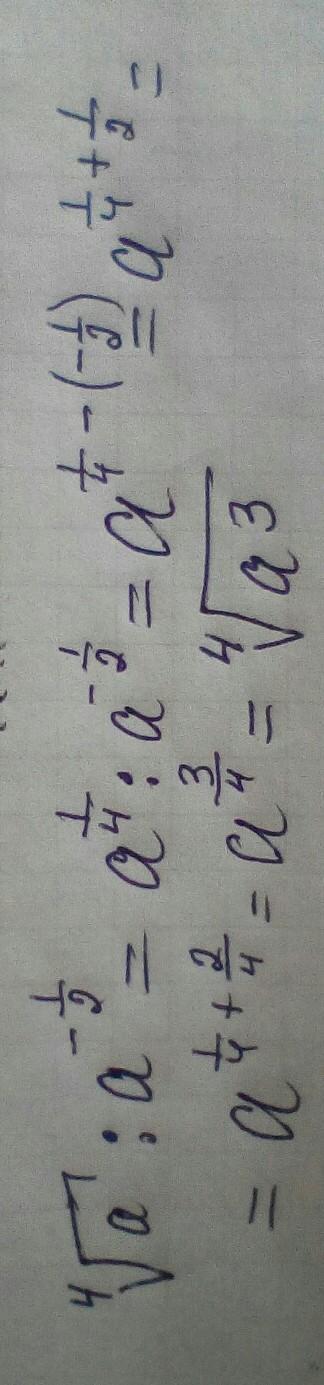 ⁴√a : a^(-1/2) = a^(1/4) : a^(-1/2) = a^(1/4 - (-1/2)) = a^(1/4 + 1/2) =
= a^(1/4 + 2/4) = a^(3/4) = ⁴√a³